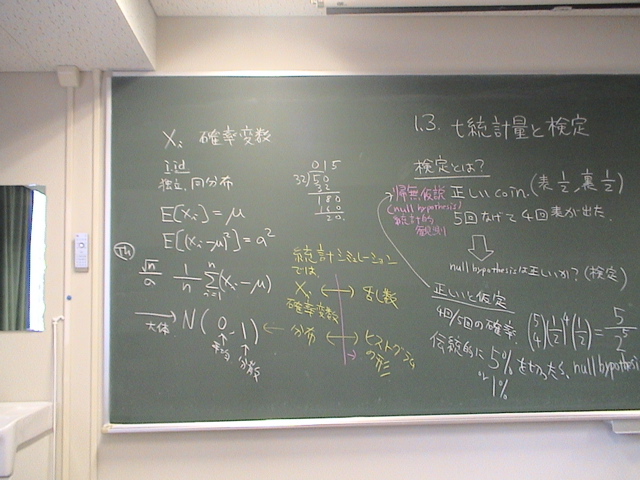 Xi 確率変数
i.i.d
独立, 同分布
E[Xi] = μ
E[(Xi - μ)²] = a²
Th
√n/a 1/n Σ(Xi - μ)
i=1 n
→ N(0, 1)
大体 平均 分散
015
32√50
32
180
160
20.
統計シミュレーション
では、
Xi ↔ 乱数
確率変数
← 分布 ↔ ヒストグラム
の形
1.3. t統計量と検定
検定とは?
帰無仮説 正しいcoin. (表 1/2, 裏 1/2)
(null hypothesis)
統計的
5回なげて4回表が出た.
⇩
null hypothesisは正しいか? (検定)
正しいと仮定
4回/5回の確率. (5 4)(1/2)⁴(1/2) = 5/2⁵
伝統的に 5% をわったら, null hypothesi
or 1%